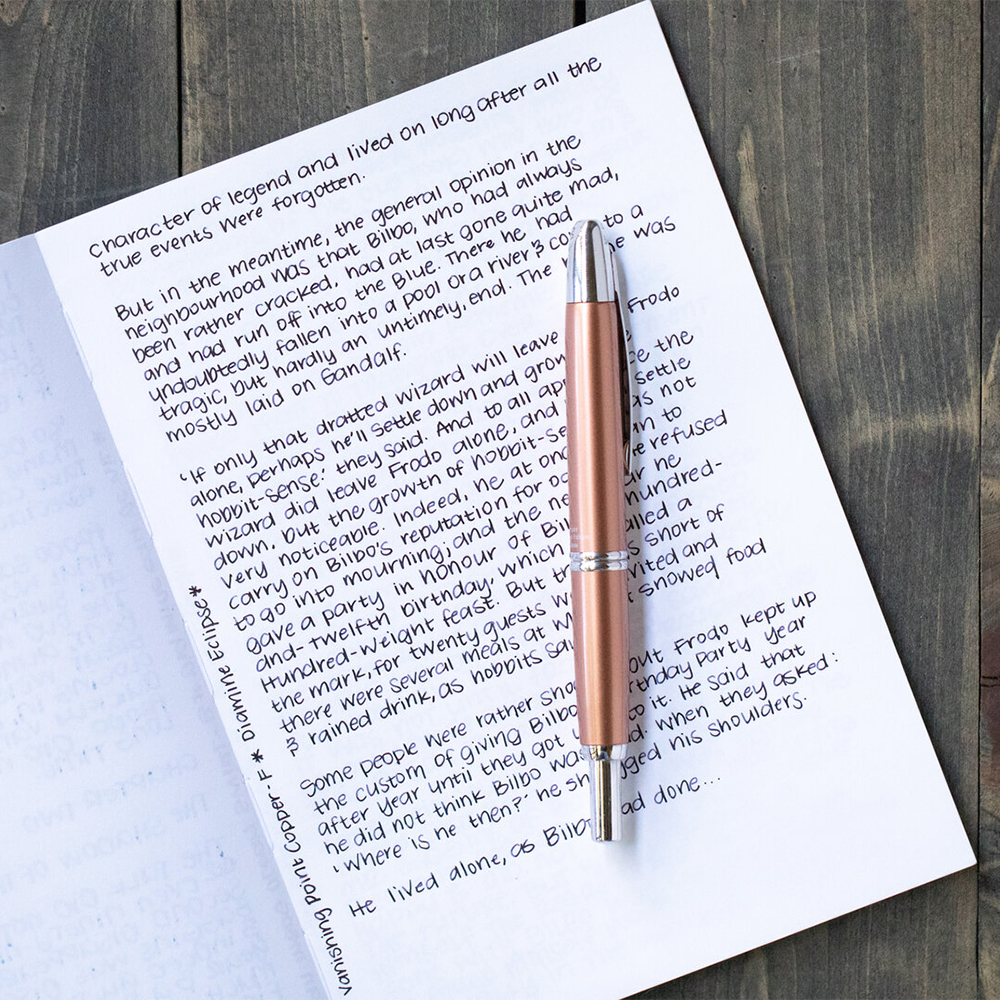 Character of legend and lived on long after all the
true events were forgotten.
But in the meantime, the general opinion in the
neighbourhood was that Bilbo, who had always
been rather cracked, had at last gone quite mad,
and had run off into the Blue. There he had
undoubtedly fallen into a pool or a river & co to a
tragic, but hardly an untimely, end. The e was
mostly laid on Gandalf.
'If only that dratted wizard will leave Frodo
alone, perhaps he'll settle down and grow e
hobbit-sense.' they said. And to all app ce the
wizard did leave Frodo alone, and settle
down, but the growth of hobbit-se as not
very noticeable. Indeed, he at on an to
carry on Bilbo's reputation for o e refused
to go into mourning; and the ne ar he
gave a party in honour of Bil hundred-
and-twelfth birthday, which alled a
Hundred-weight feast. But th s short of
the mark, for twenty guests w vited and
there were several meals at w t snowed food
& rained drink, as hobbits sa
Some people were rather sho but Frodo kept up
the custom of giving Bilbo rthday Party year
after year until they got to it. He said that
he did not think Bilbo was d. When they asked:
'Where is he then?' he sh gged his shoulders.
He lived alone, as Bilb ad done...
Vanishing Point Copper - F * Diamine Eclipse *